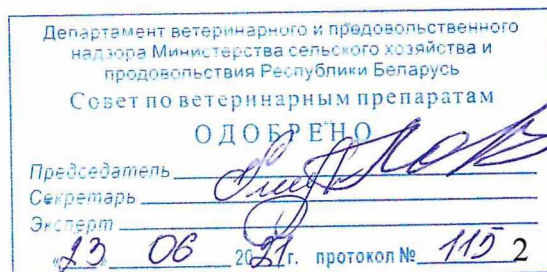 Департамент ветеринарного и продовольственного
надзора Министерства сельского хозяйства и
продовольствия Республики Беларусь
Совет по ветеринарным препаратам
ОДОБРЕНО
Председатель
Секретарь
Эксперт
«23» 06 2021г. протокол № 115 2